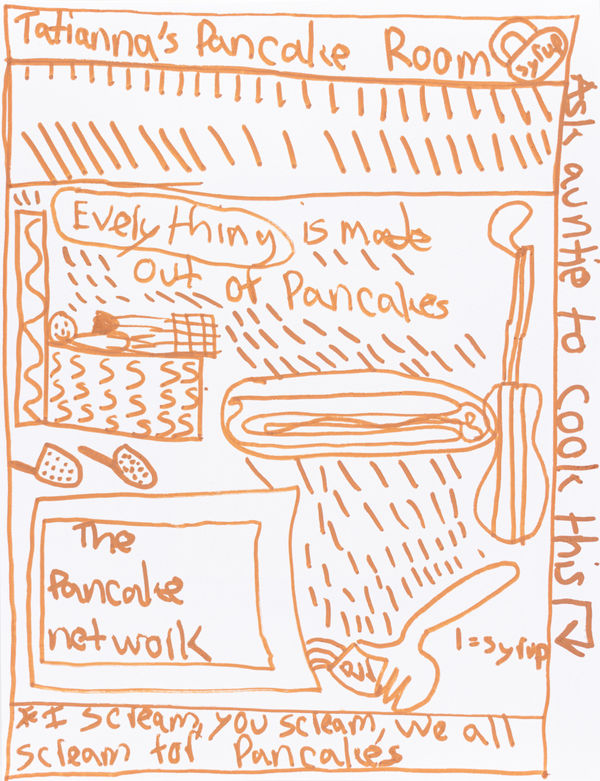 Tatianna's Pancake Room
syrup
Everything is made
out of Pancakes
Ask auntie to cook this
The
Pancake
network
1 = syrup
*I scream, you scream, we all
scream for Pancakes